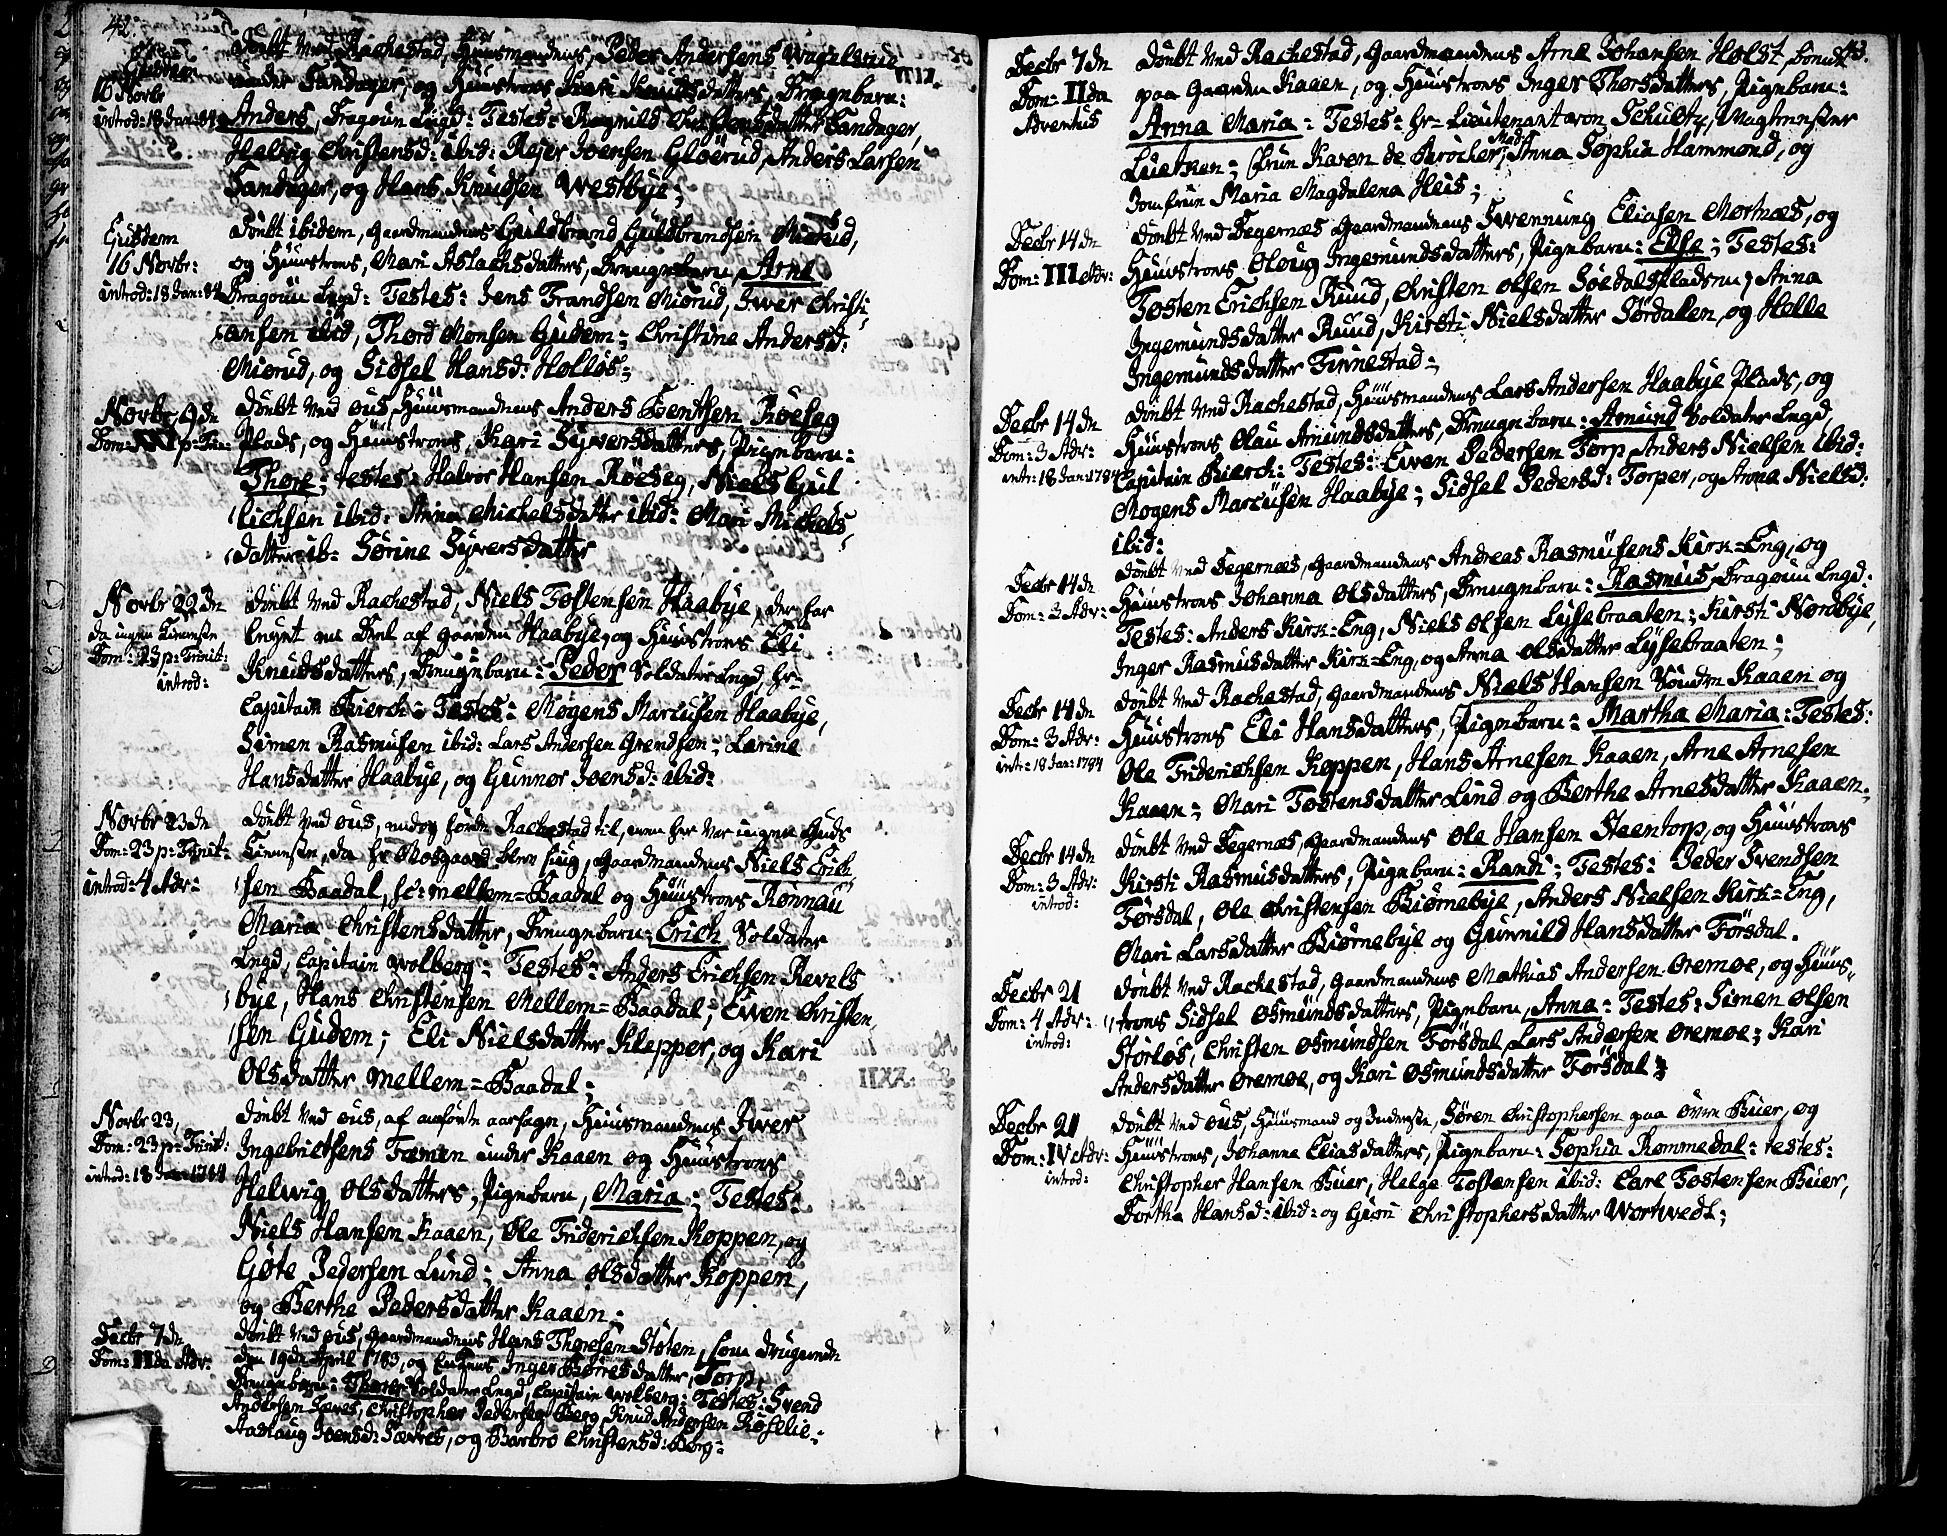 42.
Ejusdem
16 Novbr
introd: 18 Jan: 84
Döbt ved Rachestad, Huusmandens, Peder Andersens
under Sandager, og Huustroes Kari Knudsdatters, Drengebarn:
Anders, Dragoun Lægd: Testes: Ragnild Christensdatter Sandager,
Helvig Christensd: ibid: Rejer Ivensen Gloërud, Anders Larsen
Sandager, og Hans Knudsen Westbye;
Ejusdem
16 Novbr:
introd: 18 Jan: 84
Döbt ibidem, Gaardmandens Guldbrand Guldbrandsen Miörud,
og Huustroes, Mari Aslachsdatters, Drengebarn, Arne
Dragoun Lægd: Testes: Jens Frandsen Miörud, Iver Christi
ansen ibid, Thord Monsen Gudem; Christine Andersd:
Miörud, og Sidsel Hansd: Hollös;
Novbr 9 dn
Dom: XXI p: Trin:
Döbt ved ous, Huusmandens Anders Bentsen Röeseg
Plads, og Huustroes, Kari Syversdatters, Pigebarn:
Thore; testes: Halvor Hansen Röeseg, Niels Gul
lichsen ibid: Anna Michelsdatter ibid: Mari Michels
datter ib: Sörine Syversdatter
Novbr 22 dn
da ingen Tieneste
Dom: 23 p: Trinit:
introd:
Döbt ved Rachestad, Niels Tostensen Haabye, der har
bögt en Deel af gaarden Haabye, og Huustroes Eli
Knudsdatters, Drengebarn: Peder Soldater Lægd, Hr
Capitain Bierch: Testes: Mogens Marcusen Haabye,
Simen Rasmusen ibid: Lars Andersen Grendsen; Larine
Hansdatter Haabye, og Gunnor Ivensd: ibid:
Novbr 23 dn
Dom: 23 p: Trinit:
introd: 4 Adv:
Döbt ved ous, endog hörde Rachestad til, men her var ingen Guds
Tieneste, da Hr Mosgaard blev siug, Gaardmandens Niels Erich
sen Baadal, sc: mellem=Baadal og Huustroes Rönnau
Maria Christensdatter, Drengebarn: Erich Soldater
Lægd, Capitain Wolberg: Testes: Anders Erichsen Revels
bye, Hans Christensen Mellem=Baadal; Even Christen
sen Gudem; Eli Nielsdatter Klepper, og Kari
Olsdatter mellem=Baadal;
Novbr 23,
Dom: 23 p: Trinit:
introd: 18 Jan: 1784
Döbt ved ous, af anförte aarsage, Huusmandens Iver
Ingebretsens Tomen under Kaaen og Huustroes
Helwig Olsdatters, Pigebarn, Maria; Testes:
Niels Hansen Kaaen, Ole Friderichsen Koppen, og
Göte Pedersen Lund; Anna Olsdatter Koppen,
og Berthe Pedersdatter Kaaen;
Decbr 7 dn
Dom: II da Adv:
Döbt ved ous, Gaardmandens Hans Thoresen Stöten, som
den 19de April 1783, og Enkens Inger Börresdatter, Torp,
Drengebarn: Thorer Soldater Lægd, Capitain Wolberg: Testes: Svend
Andersen Særes, Christopher Pedersen Berg, Knud Andersen Röselie;
Aaslaug Ivensd: Særres, og Barbro Christensd: Berg:
43.
Decbr 7 dn
Dom: II da
Adventus
Döbt ved Rachestad, Gaardmandens Arne Johansen Holst, bonde
paa Gaarden Kaaen, og Huustroes Inger Thorsdatters, Pigebarn:
Anna Maria: Testes: Hr Lieutenant von Schultz, Wagtmester
Luetken; Frue Karen de Brocher; Mad: Anna Sophia Hammond, og
Jomfrue Maria Magdalena Heis;
Decbr 14 dn
Dom: III Adv:
Döbt ved Degernæs Gaardmandens Svennung Eliasen Mortnæs, og
Huustroes Oloug Ingemundsdatters, Pigebarn: Else; Testes:
Tosten Erichsen Ruud, Christen Olsen Söedalspladsen; Anna
Ingemundsdatter Ruud, Kirsti Nielsdatter Sördalen, og Helle
Ingemundsdatter Finnestad;
Decbr 14 dn
Dom: 3 Adv:
intr: 18 Jan: 1784
Döbt ved Rachestad, Huusmandens Lars Andersen Haabye Plads, og
Huustroes Olau Amundsdatters, Drengebarn: Amund Soldater Lægd,
Capitain Bierch: Testes: Even Pedersen Torp Anders Nielsen ibid:
Mogens Marcusen Haabye; Sidsel Pedersd: Torper, og Anne Nielsd:
ibid:
Decbr 14 dn
Dom: 3 Adv:
Döbt ved Degernæs, Gaardmandens Andreas Rasmusens Kirk=Eng, og
Huustroes Johanna Olsdatters, Drengebarn: Rasmus, Dragoun Lægd:
Testes: Anders Kirk=Eng, Niels Olsen Lysebraaten; Kirsti Nordbye,
Inger Rasmusdatter Kirk=Eng, og Anna Olsdatter Lysebraaten;
Decbr 14 dn
Dom: 3 Adv:
intr: 18 Jan: 1784
Döbt ved Rachestad, Gaardmandens Niels Hansen Söndre Kaaen og
Huustroes Eli Hansdatters, Pigebarn: Martha Maria: Testes:
Ole Friderichsen Koppen, Hans Arnesen Kaaen, Arne Arnesen
Kaaen; Mari Tostensdatter Lund og Berthe Arnesdatter Kaaen;
Decbr 14 dn
Dom: 3 Adv:
introd:
Döbt ved Degernæs, Gaardmandens Ole Hansen Steentorp, og Huustroes
Kirsti Rasmusdatters, Pigebarn: Randi; Testes: Peder Svendsen
Försdal, Ole Christensen Biörnebye, Anders Nielsen Kirk=Eng,
Mari Larsdatter Biörnebye og Gunnild Hansdatter Försdal.
Decbr 21
Dom: 4 Adv:
introd:
Döbt ved Rachestad, Gaardmandens Mathias Andersen Oremoe, og Huus
troes Sidsel Osmundsdatters, Pigebarn, Anna: Testes: Simen Olsen
Störlös, Christen Osmundsen Försdal, Lars Andersen Oremoe; Kari
Andersdatter Oremoe, og Kari Osmundsdatter Försdal
Decbr 21
Dom: IV Adv:
introd:
Döbt ved ous, Huusmand og Inderste, Sören Christophersen paa övre Buer, og
Huustroes, Johanne Eliasdatters, Pigebarn: Sophia Rommedal: testes:
Christopher Hansen Buer, Helge Tostensen ibid: Carl Tostensen Buer,
Dorthe Hansd: ibid: og Guri Christophersdatter Wortvedt;